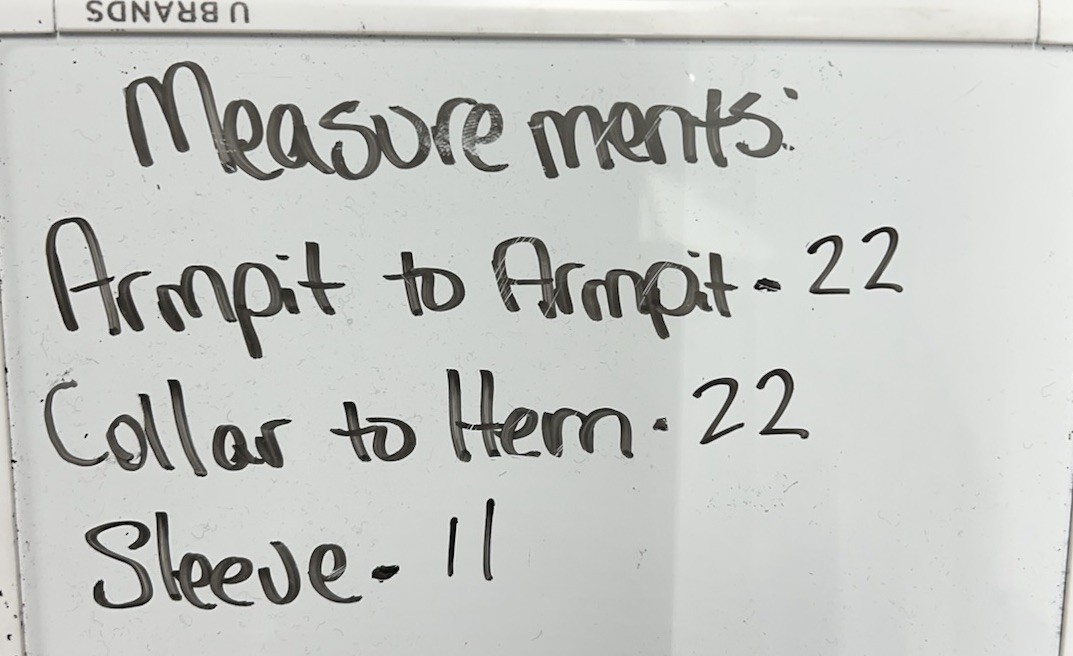 U BRANDS
Measurements:
Armpit to Armpit - 22
Collar to Hem - 22
Sleeve - 11